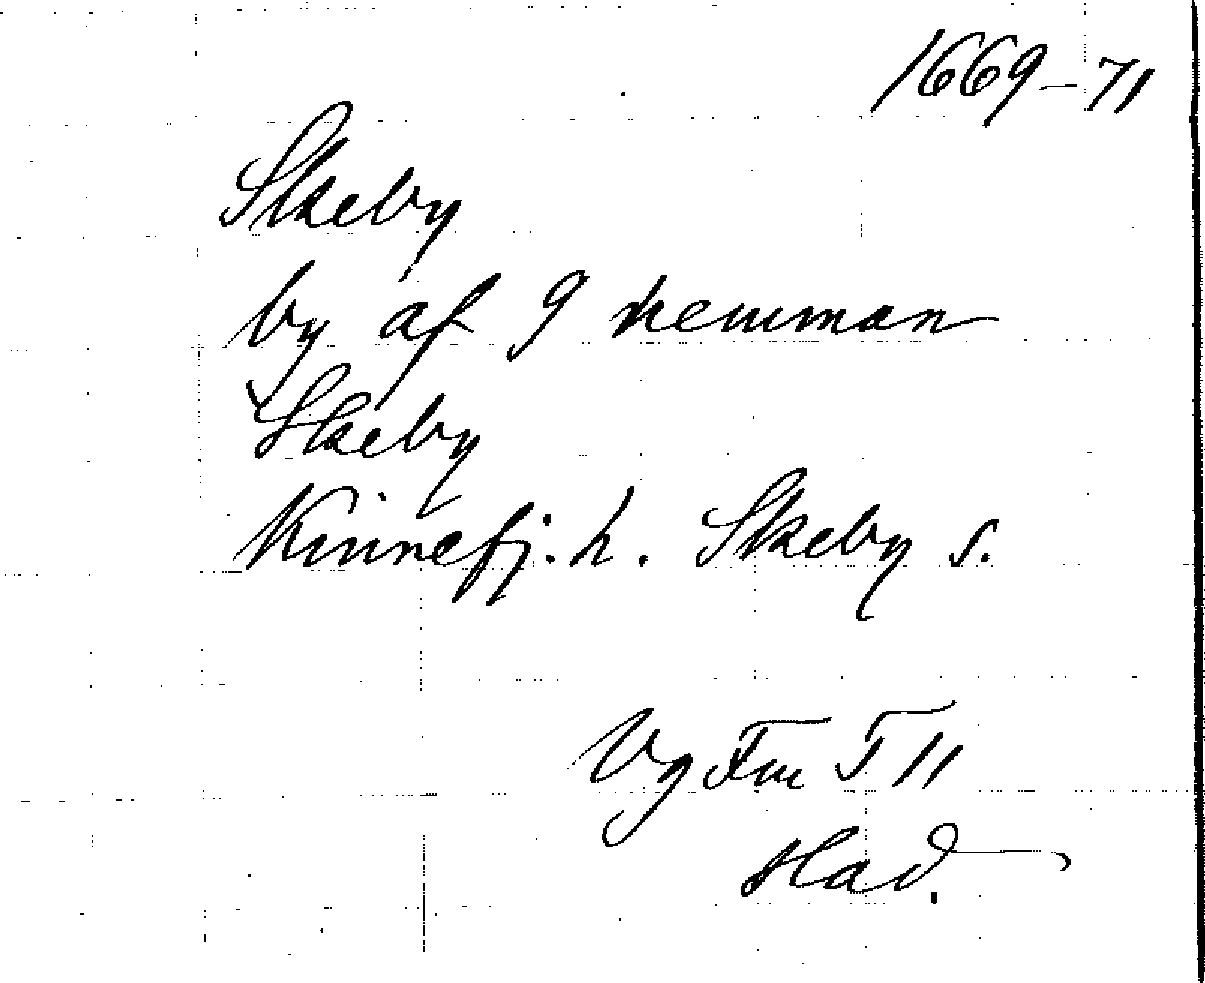 1669-71
Skeby
by af 9 hemman
Skeby
Kinnefj. h. Skeby s.
Vg Fm I 11
Had.